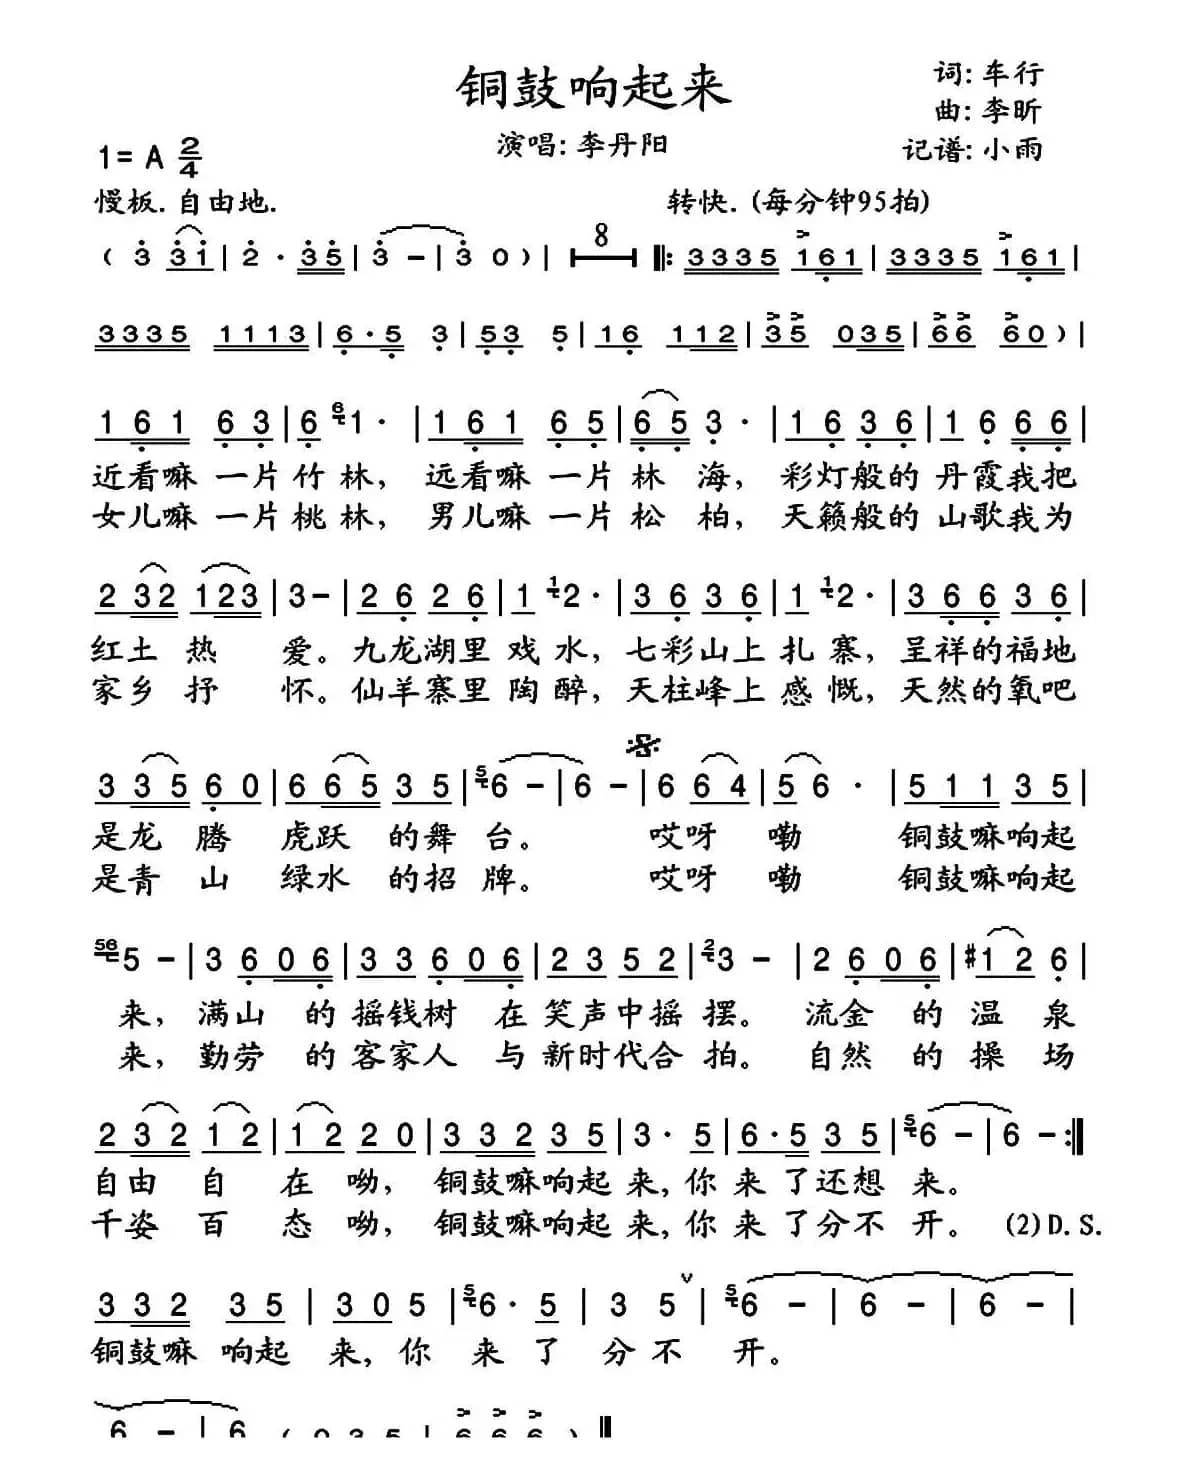 铜鼓响起来
词: 车行
曲: 李昕
演唱: 李丹阳
记谱: 小雨
1= A 2/4
慢板. 自由地.
转快. (每分钟95拍)
( 3 3 1 | 2 · 3 5 | 3 - | 3 0 ) | 8 ‖: 3 3 3 5 1 6 1 | 3 3 3 5 1 6 1 |
3 3 3 5 1 1 1 3 | 6 · 5 3 | 5 3 5 | 1 6 1 1 2 | 3 5 0 3 5 | 6 6 6 0 ) |
1 6 1 6 3 | 6 6 1 · | 1 6 1 6 5 | 6 5 3 · | 1 6 3 6 | 1 6 6 6 |
近看嘛 一片 竹 林, 远看嘛 一片 林 海, 彩灯般的 丹霞我把
女儿嘛 一片 桃 林, 男儿嘛 一片 松 柏, 天籁般的 山歌我为
2 3 2 1 2 3 | 3 - | 2 6 2 6 | 1 1 2 · | 3 6 3 6 | 1 1 2 · | 3 6 6 3 6 |
红土 热 爱。九龙湖里 戏 水, 七彩山上 扎 寨, 呈祥的福地
家乡 抒 怀。仙羊寨里 陶 醉, 天柱峰上 感 慨, 天然的氧吧
3 3 5 6 0 | 6 6 5 3 5 | 5 6 - | 6 - | 6 6 4 | 5 6 · | 5 1 1 3 5 |
是龙 腾 虎跃 的舞 台。 哎呀 嘞 铜鼓嘛响起
是青 山 绿水 的招 牌。 哎呀 嘞 铜鼓嘛响起
56 5 - | 3 6 0 6 | 3 3 6 0 6 | 2 3 5 2 | 2 3 - | 2 6 0 6 | #1 2 6 |
来, 满山 的 摇钱树 在 笑声中摇 摆。 流金 的 温 泉
来, 勤劳 的 客家人 与 新时代合 拍。 自然 的 操 场
2 3 2 1 2 | 1 2 2 0 | 3 3 2 3 5 | 3 · 5 | 6 · 5 3 5 | 5 6 - | 6 - :‖
自由 自 在 呦, 铜鼓嘛响起 来, 你 来 了还想 来。
千姿 百 态 呦, 铜鼓嘛响起 来, 你 来 了分不 开。 (2) D. S.
3 3 2 3 5 | 3 0 5 | 5 6 · 5 | 3 5 ∨ | 5 6 - | 6 - | 6 - |
铜鼓嘛 响起 来, 你 来 了 分 不 开。
6 - | 6 ( 0 3 5 | 6 6 6 ) ‖